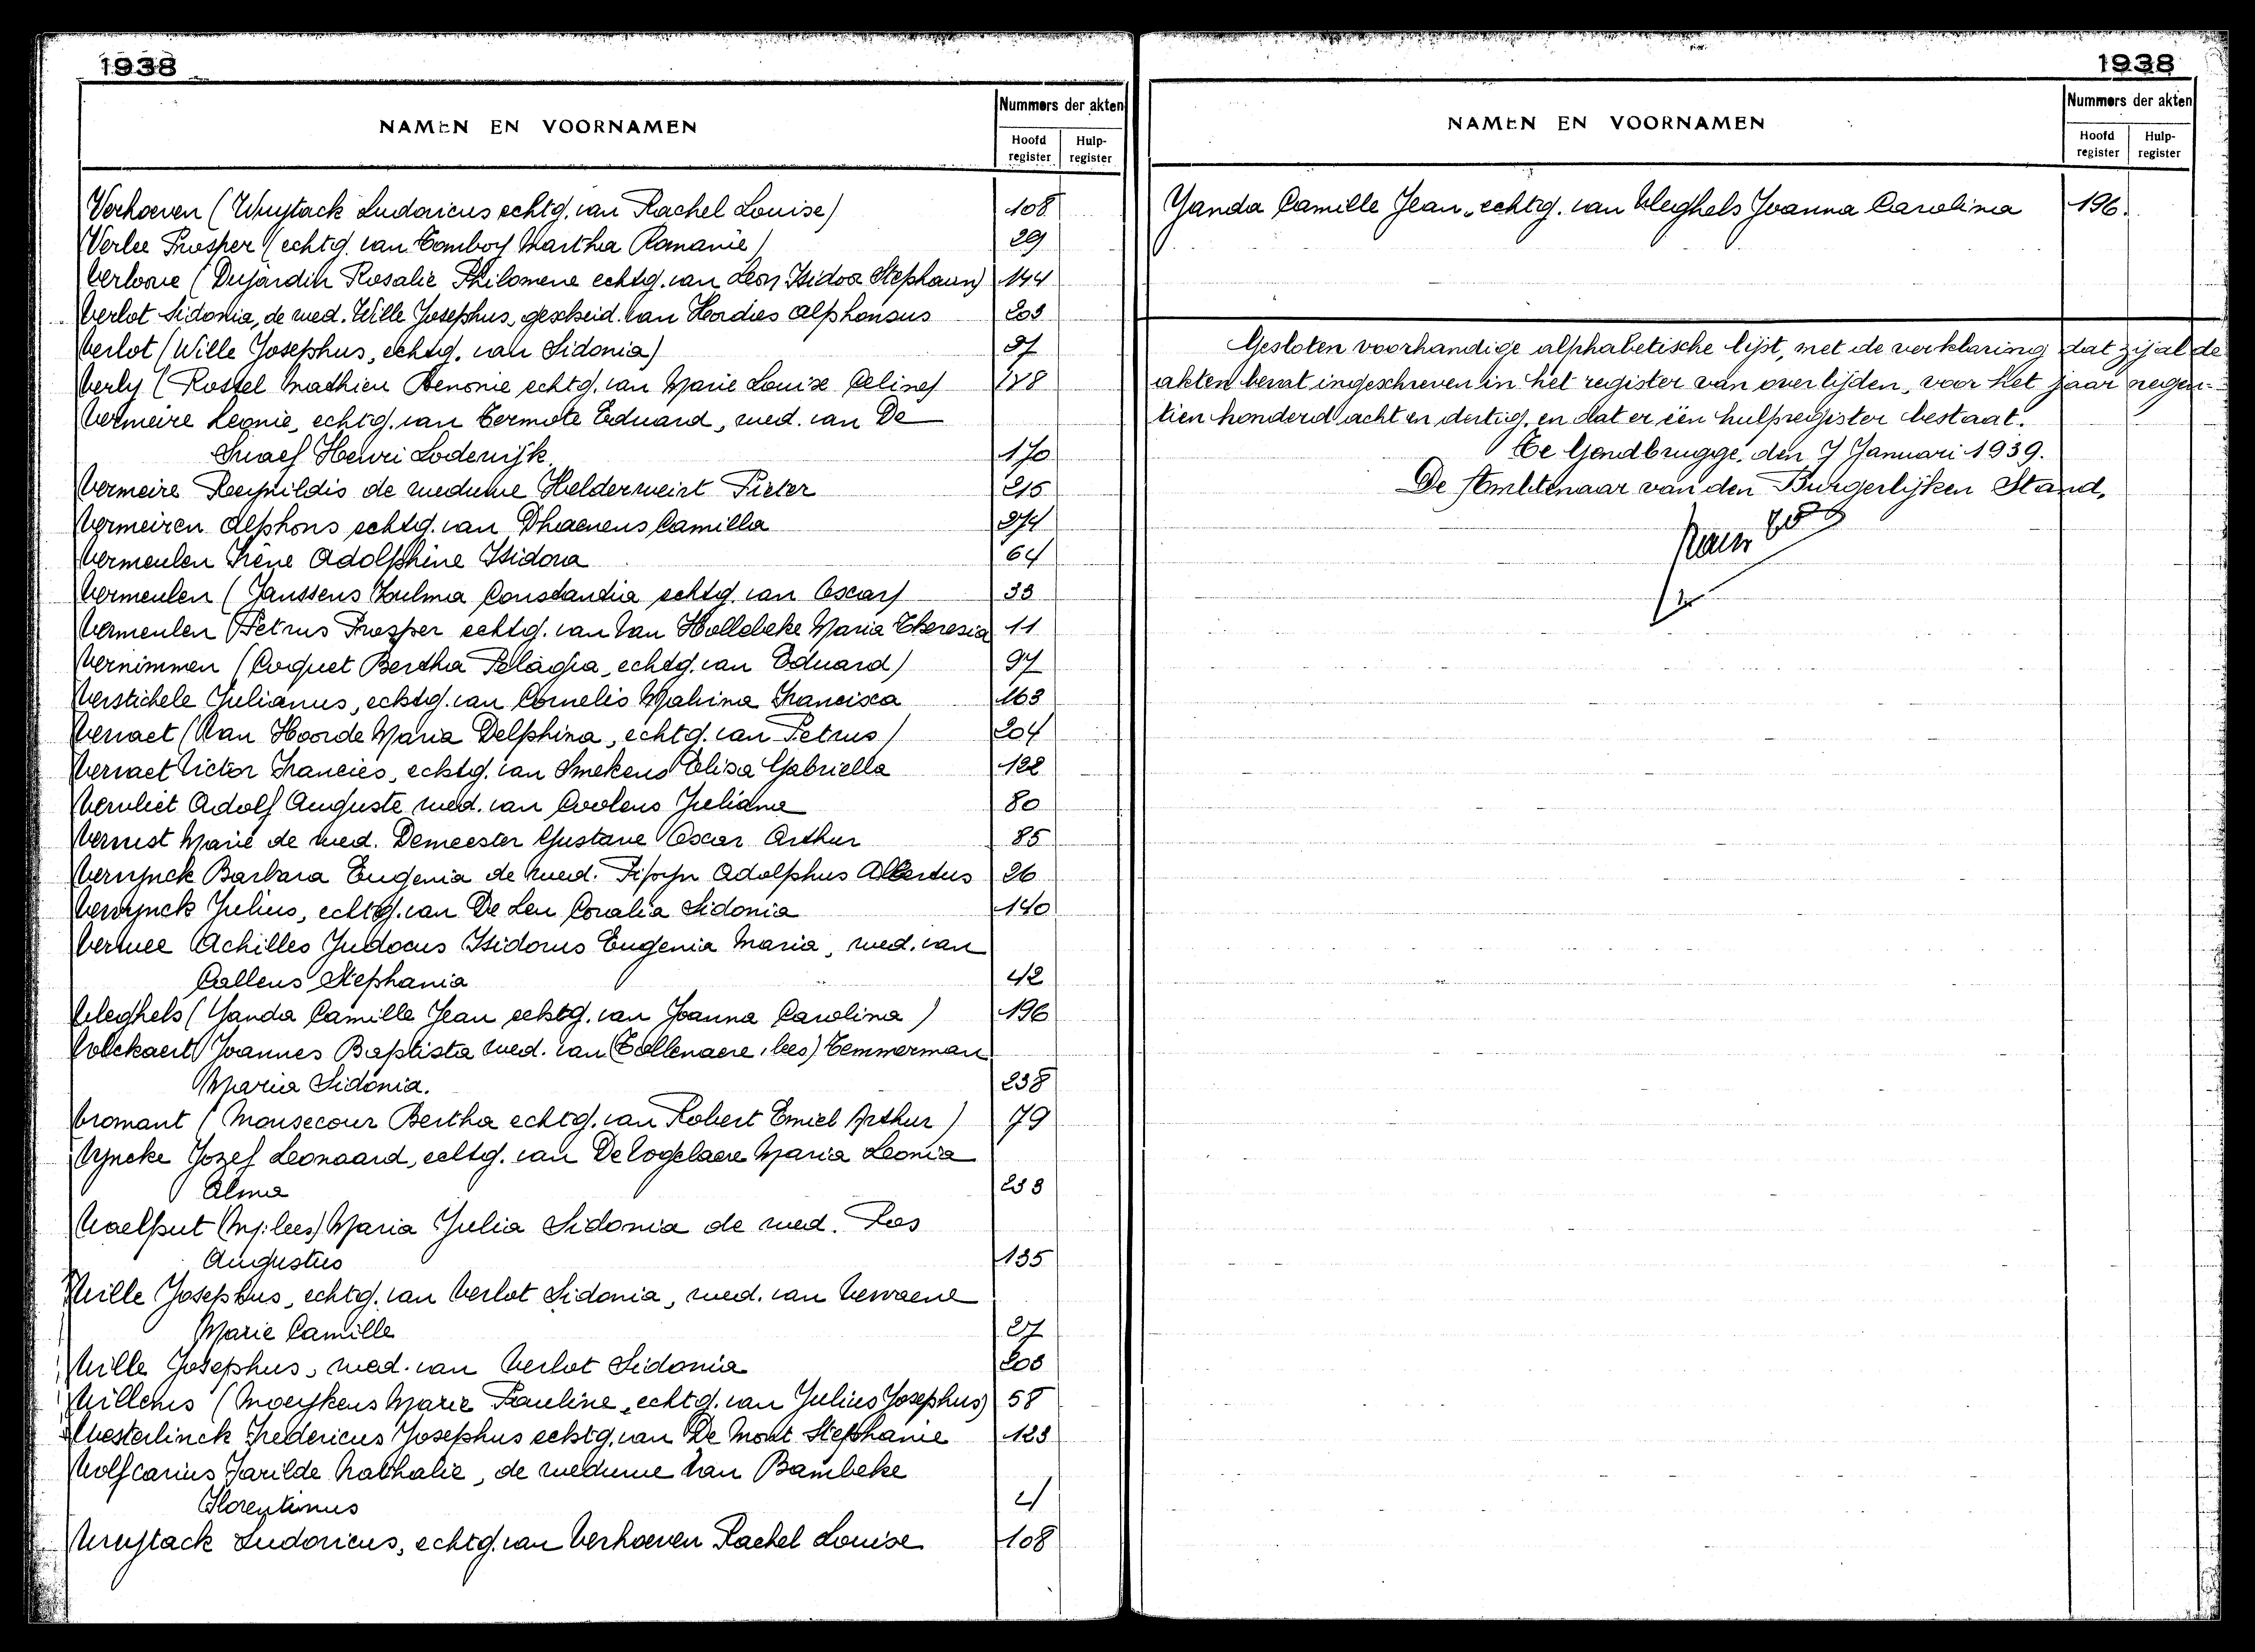 1938
NAMEN EN VOORNAMEN
Nummers der akten
Hoofd register
Hulp-register
Verhoeven (Wuytack Ludovicus echtg. van Rachel Louise) 108
Verlee Prosper (echtg. van Comboy Martha Romanie) 29
Verloove (Dujardin Rosalie Philomene echtg. van Leon Isidoor Stephaan) 144
Verlot Sidonia, de wed. Wille Josephus, gescheid. van Hordies Alphonsus 203
Verlot (Wille Josephus, echtg. van Sidonia) 27
Verly (Rossel Mathieu Benonie echtg. van Marie Louise Celine) 128
Vermeire Leonie, echtg. van Termote Eduard, wed. van De
Graef Henri Lodewijk 170
Vermeire Reynildis de weduwe Helderweirt Pieter 215
Vermeiren Alphons echtg. van Dhaenens Camilla 274
Vermeulen Irène Adolphine Isidora 64
Vermeulen (Janssens Zulma Constantia echtg. van Oscar) 33
Vermeulen Petrus Prosper echtg. van Van Hollebeke Maria Theresia 11
Vernimmen (Coquet Bertha Pelagia, echtg. van Eduard) 97
Verstichele Julianus, echtg. van Cornelis Malvina Francisca 163
Vervaet (Van Hoorde Maria Delphina, echtg. van Petrus) 204
Vervaet Victor Francies, echtg. van Smekens Elisa Gabriella 122
Vervliet Adolf Auguste wed. van Coolens Juliana 80
Vervust Marie de wed. Demeester Gustave Oscar Arthur 85
Verwynck Barbara Eugenia de wed. Adolphus Albertus 26
Verwynck Julius, echtg. van De Leu Coralia Sidonia 140
Verwee Achilles Judocus Isidorus Eugenia Maria, wed. van
Callens Stephania 42
Vleghels (Yanda Camille Jean echtg. van Joanna Carolina) 196
Volckaert Joannes Baptista wed. van (Tollenaere, lees) Temmerman
Maria Sidonia. 238
Vromant (Monsecour Bertha echtg. van Robert Emiel Arthur) 79
Vyncke Jozef Leonaard, echtg. van De Vogelaere Maria Leonia
Alma 233
Waelput (Mj: lees) Maria Julia Sidonia de wed. Pos
Augustus 135
Wille Josephus, echtg. van Verlot Sidonia, wed. van Vervaene
Marie Camille 27
Wille Josephus, wed. van Verlot Sidonia 203
Willems (Moeykens Marie Pauline, echtg. van Julius Josephus) 58
Westerlinck Fredericus Josephus echtg. van De Mont Stephanie 123
Wolfcarius Farilde Nathalie, de weduwe Van Bambeke
Florentinus 4
Wuytack Ludovicus, echtg. van Verhoeven Rachel Louise 108
1938
NAMEN EN VOORNAMEN
Nummers der akten
Hoofd register
Hulp-register
Yanda Camille Jean, echtg. van Vleghels Joanna Carolina 196.
Gesloten voorhandige alphabetische lijst, met de verklaring dat zij al de
akten bevat ingeschreven in het register van overlijden, voor het jaar negen-
tien honderd acht en dertig, en dat er één hulpregister bestaat.
Te Gendbrugge, den 7 Januari 1939.
De Ambtenaar van den Burgerlijken Stand,